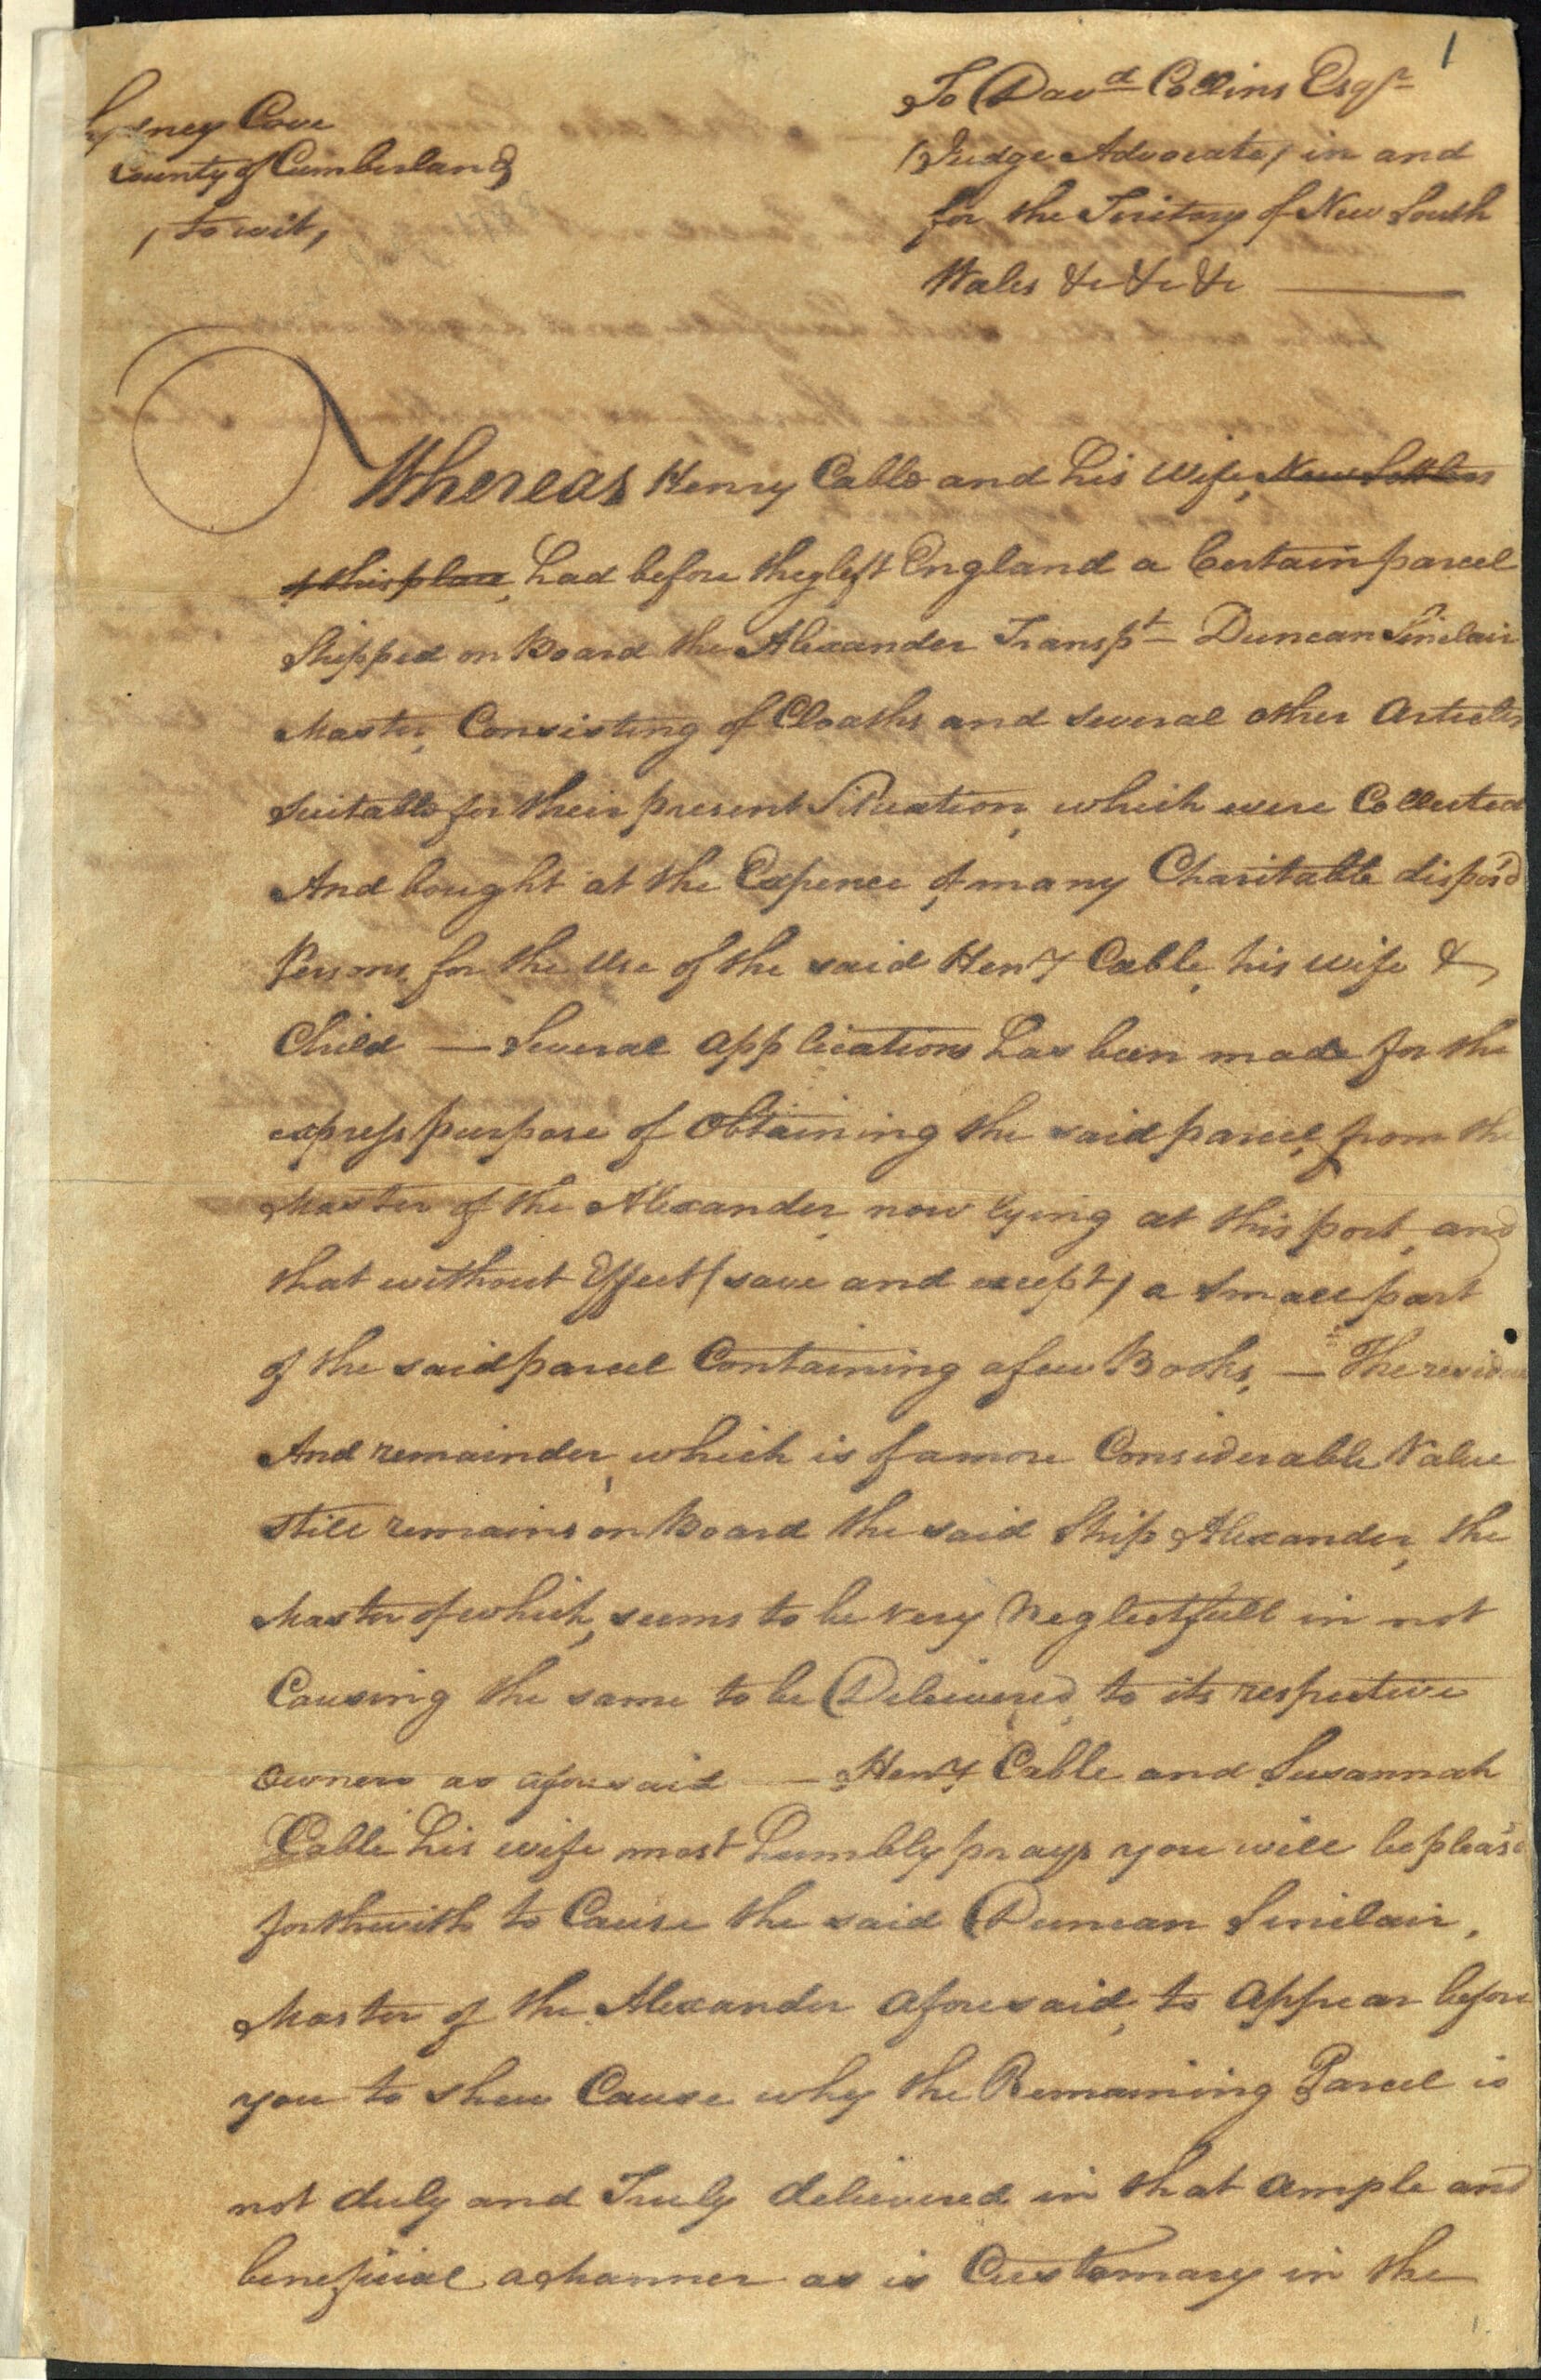 1
Sydney Cove
County of Cumberland
, to wit,
To Dav.d Collins Esqr.
(Judge Advocate) in and
for the Teritory of New South
Wales &c &c &c ———
Whereas Henry Cable and his Wife, New Settlers
of this place, had before they left England a Certain parcel
Shipped on Board the Alexander Transpt. Duncan Sinclair
Master, Consisting of Cloaths and several other Articles
suitable for their present Situation, which were Collected
And bought at the Expence of many Charitable dispos'd
Persons for the Use of the said Henry Cable, his wife &
Child — Several applications has been made for the
express purpose of obtaining the said parcel, from the
Master of the Alexander, now lying at this port, and
that without Effect (save and except) a small part
of the said parcel Containing a few Books, — The residue
And remainder, which is of a more Considerable Value
still remains on Board the said Ship Alexander, the
Master of which, seems to be very Neglectfull in not
Causing the same to be Delivered, to its respective
owners as aforesaid — Henry Cable and Susannah
Cable his wife most humbly prays you will be pleas'd
forthwith to Cause the said Duncan Sinclair,
Master of the Alexander aforesaid, to appear before
you to shew Cause why the Remaining Parcel is
not duly and Truly delivered in that ample and
beneficial a Manner as is Customary in the